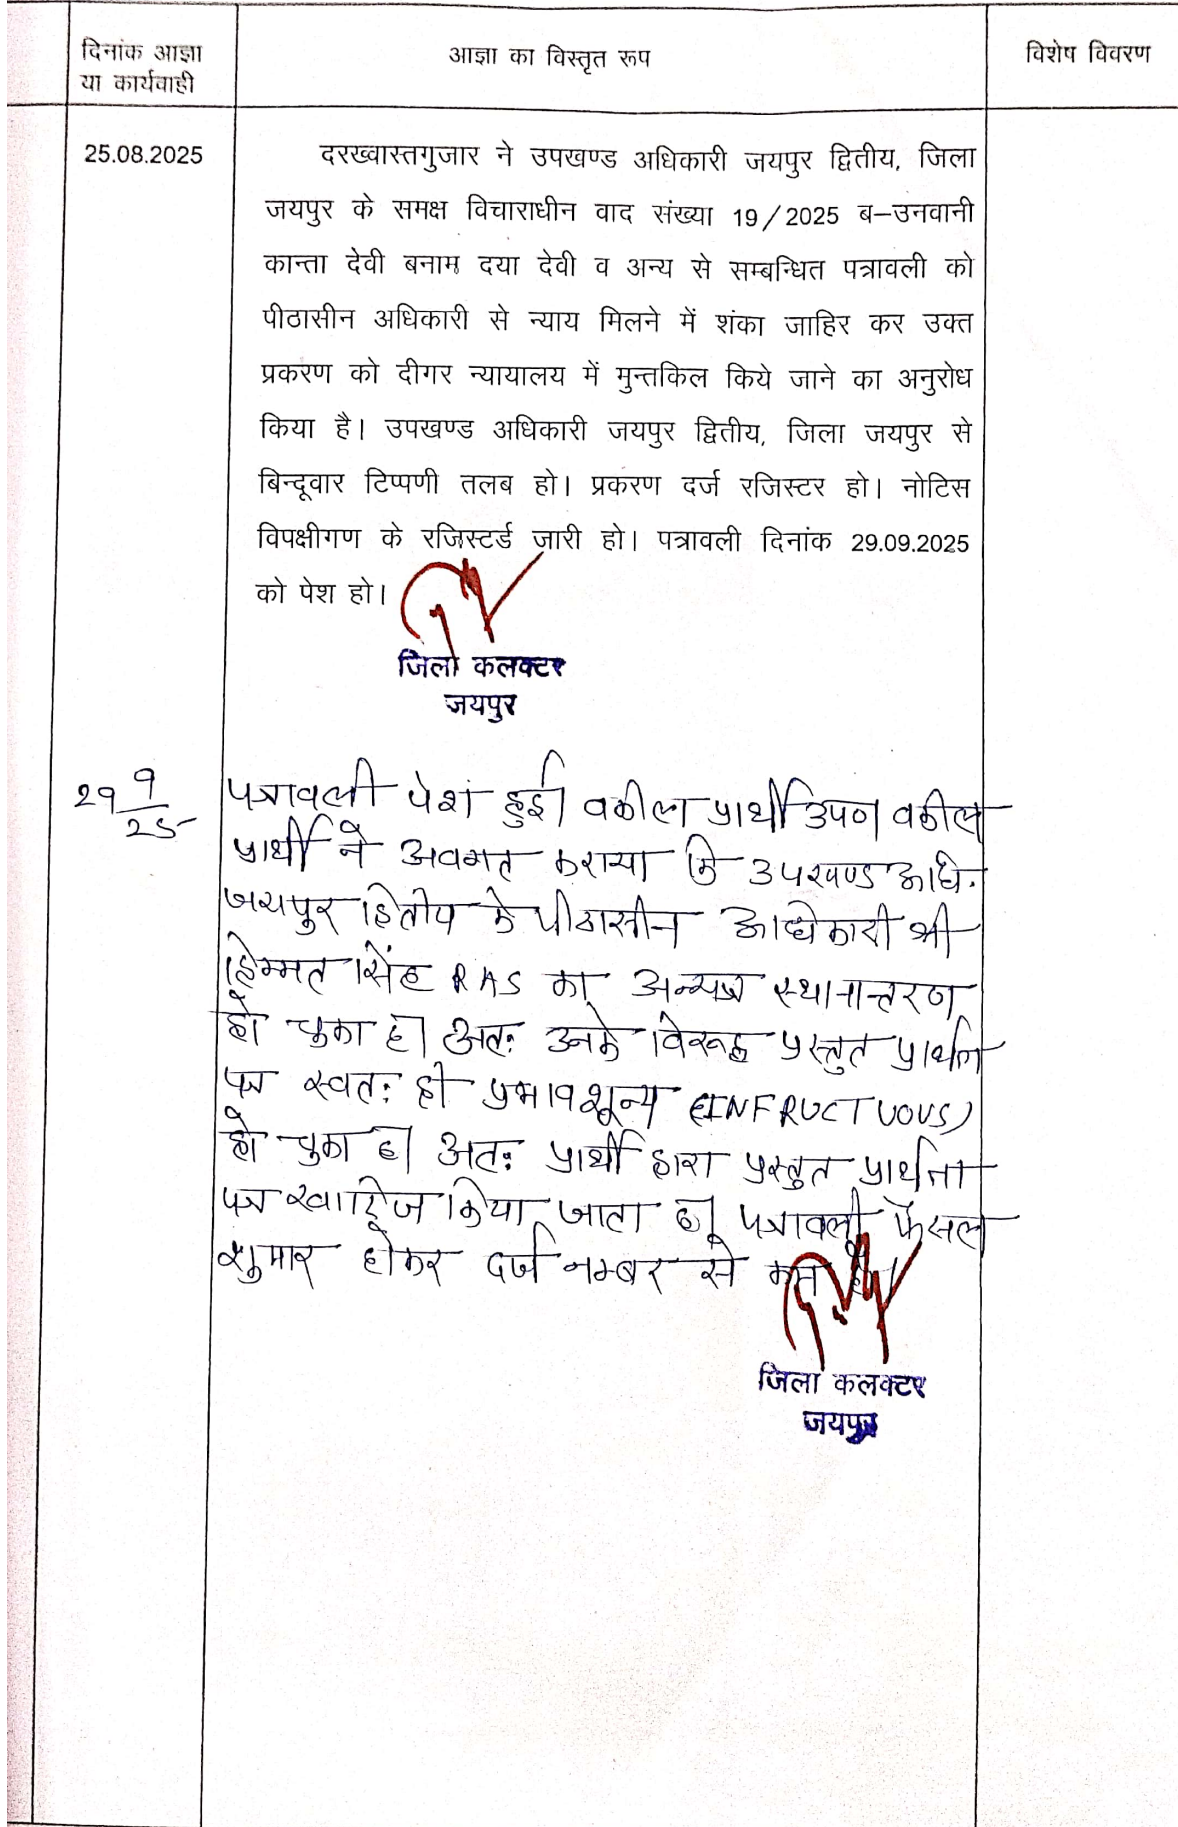 दिनांक आज्ञा
या कार्यवाही
आज्ञा का विस्तृत रूप
विशेष विवरण
25.08.2025
दरख्वास्तगुजार ने उपखण्ड अधिकारी जयपुर द्वितीय, जिला
जयपुर के समक्ष विचाराधीन वाद संख्या 19/2025 ब–उनवानी
कान्ता देवी बनाम दया देवी व अन्य से सम्बन्धित पत्रावली को
पीठासीन अधिकारी से न्याय मिलने में शंका जाहिर कर उक्त
प्रकरण को दीगर न्यायालय में मुन्तकिल किये जाने का अनुरोध
किया है। उपखण्ड अधिकारी जयपुर द्वितीय, जिला जयपुर से
बिन्दूवार टिप्पणी तलब हो। प्रकरण दर्ज रजिस्टर हो। नोटिस
विपक्षीगण के रजिस्टर्ड जारी हो। पत्रावली दिनांक 29.09.2025
को पेश हो।
जिला कलक्टर
जयपुर
29 9/25
पत्रावली पेश हुई। वकील प्रार्थी उप0। वकील
प्रार्थी ने अवगत कराया कि उपखण्ड अधि.
जयपुर द्वितीय के पीठासीन अधिकारी श्री
हिम्मत सिंह RAS का अन्यत्र स्थानान्तरण
हो चुका है। अत: उनके विरूद्ध प्रस्तुत प्रार्थना
पत्र स्वत: ही प्रभावशून्य (INFRUCTUOUS)
हो चुका है। अत: प्रार्थी द्वारा प्रस्तुत प्रार्थना
पत्र खारिज किया जाता है। पत्रावली फैसल
शुमार होकर दर्ज नम्बर से कम हो।
जिला कलक्टर
जयपुर